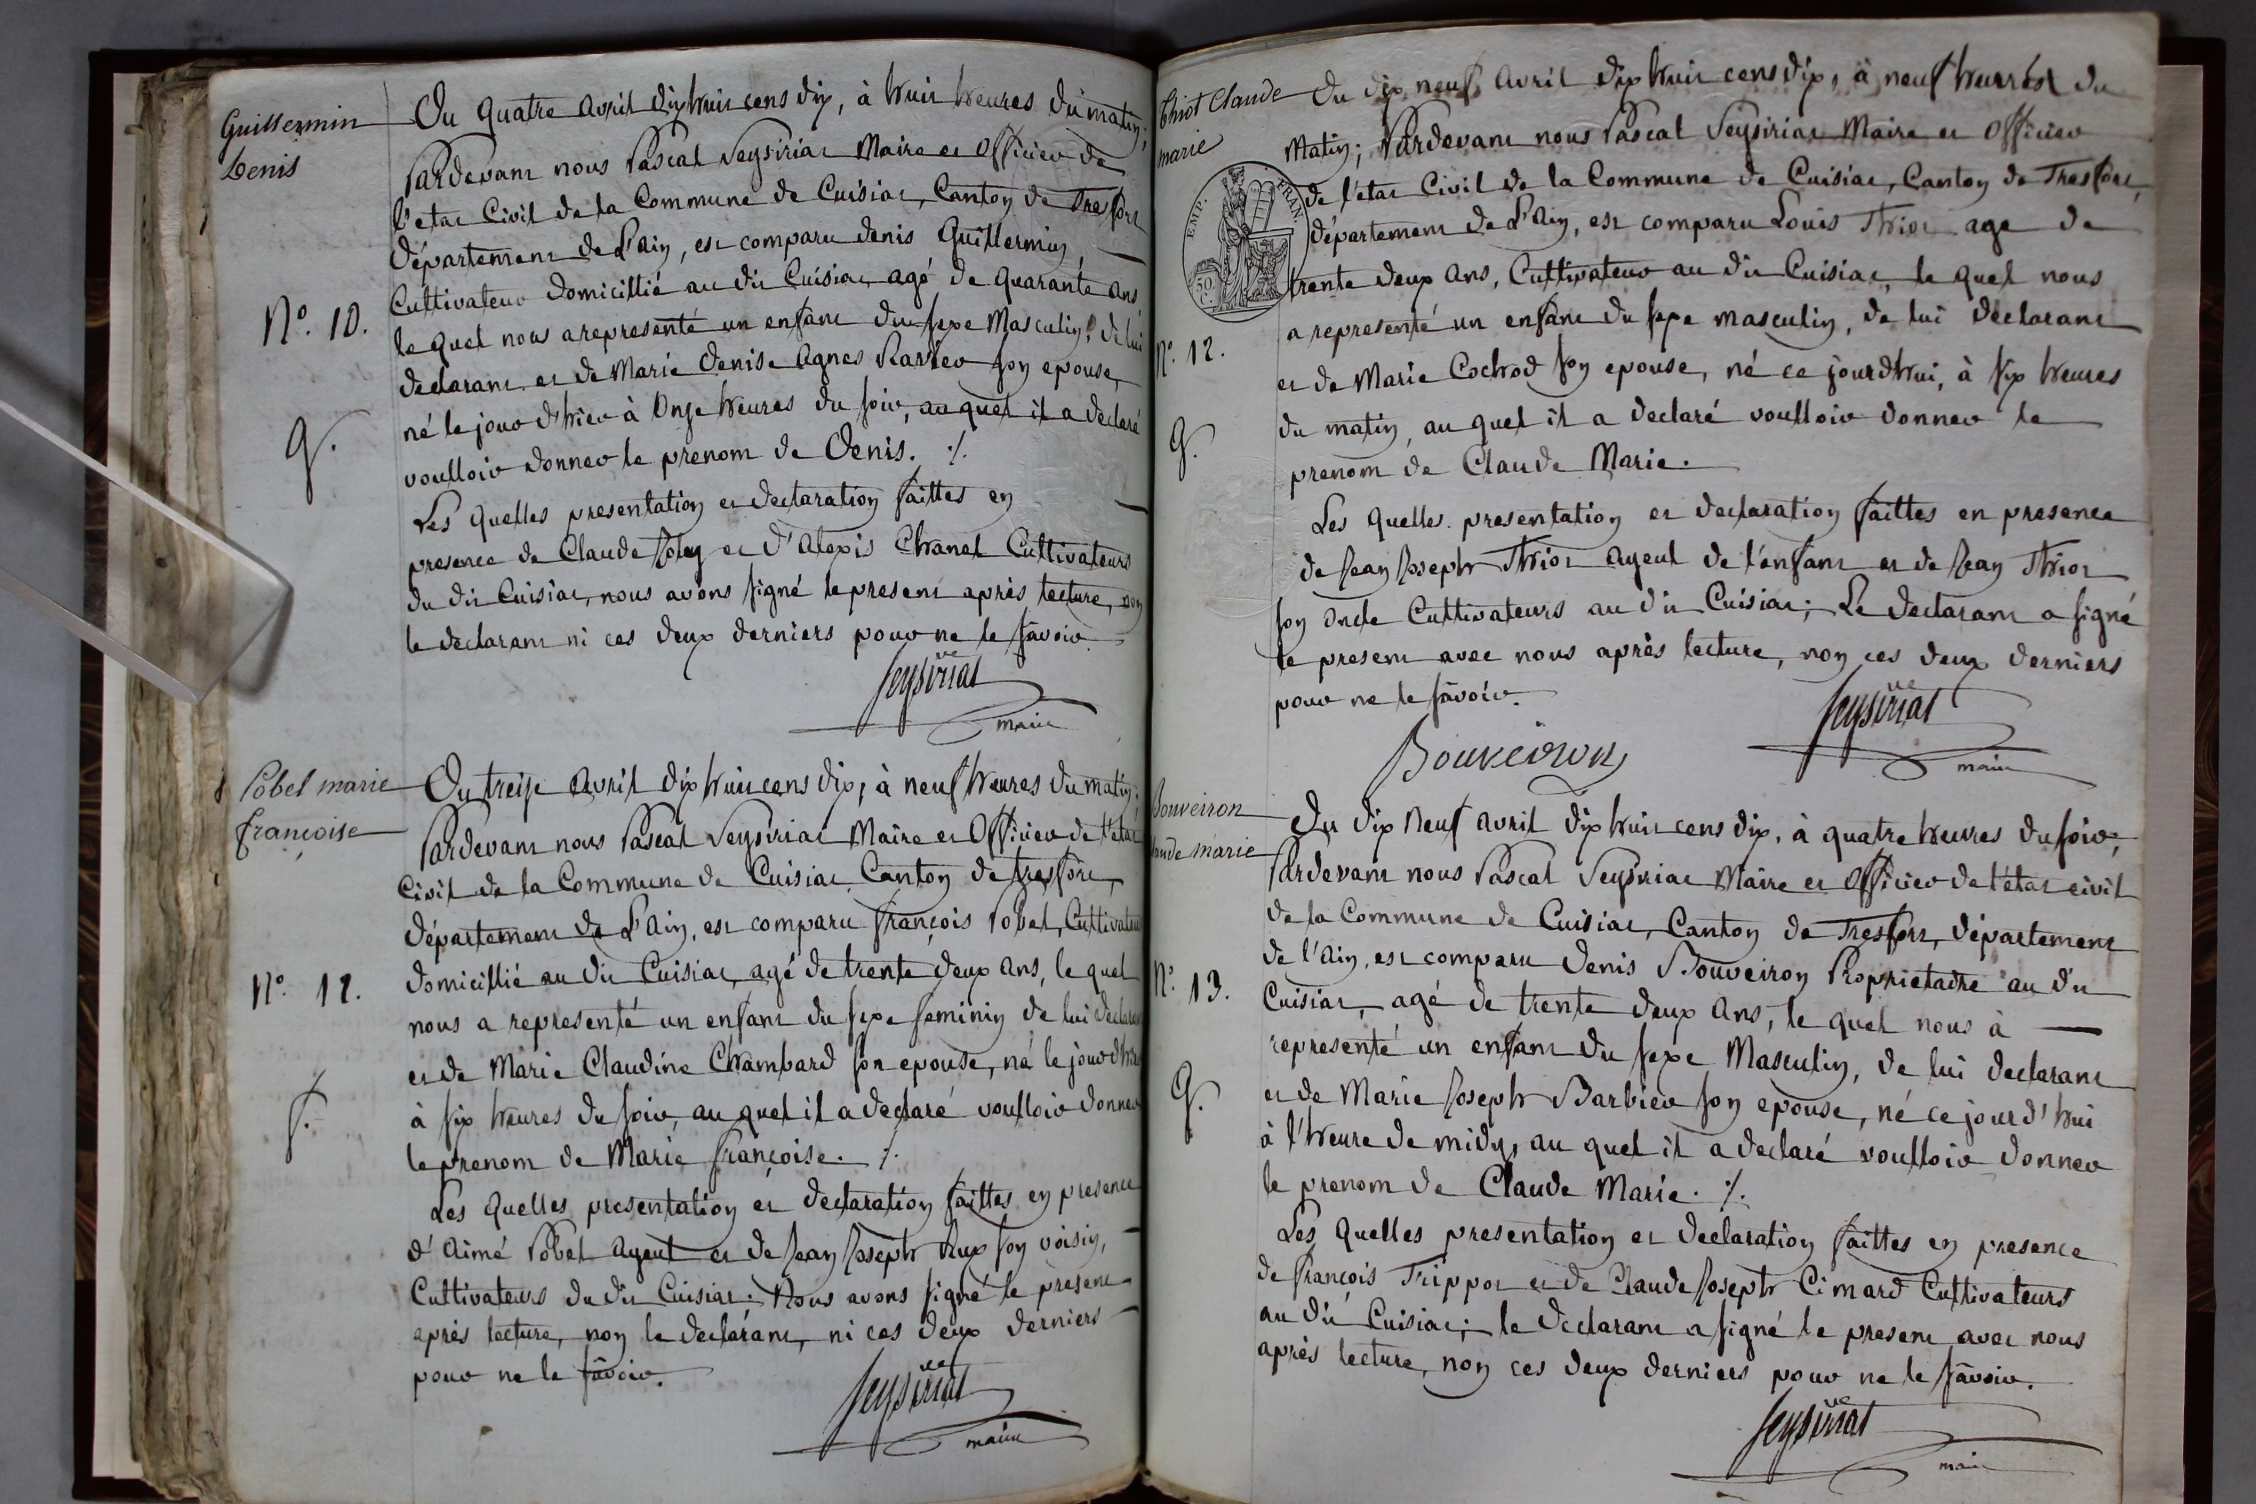 Guillermin
Denis
Du quatre avril dix huit cens dix, à huit heures du matin;
Pardevant nous Pascal Seysiriat Maire et Officier de
l'etat Civil de la Commune de Cuisiat, Canton de Tresfort
département de L'Ain, est comparu denis Guillermin,
Cultivateur domicillié au dit Cuisiat, agé de quarante ans
N.º 10.
le quel nous a representé un enfant du sexe Masculin, de lui
declarant et de Marie Denise Agnes son epouse,
né le jour d'hier à Onze heures du soir, au quel il a declaré
g.
voulloir donner le prenom de Denis. ./.
Les quelles presentation et declaration faittes en
presence de Claude et d'Alexis Chanel Cultivateurs
du dit Cuisiat, nous avons signé le present après lecture, non
le declarant ni ces deux derniers pour ne le sçavoir.
Seysiriat
maire
Pobel marie
françoise
Du treize avril dix huit cens dix, à neuf heures du matin;
Pardevant nous Pascal Seysiriat Maire et Officier de l'état
Civil de la Commune de Cuisiat, Canton de tresfort,
département de L'Ain, est comparu françois Pobel, Cultivateur
N.º 12.
domicillié au dit Cuisiat, agé de trente deux ans, le quel
nous a representé un enfant du sexe feminin de lui declarant
et de Marie Claudine Chambard son epouse, né le jour d'hier
à six heures du soir, au quel il a declaré voulloir donner
f.
le prenom de Marie françoise. ./.
Les quelles presentation et declaration faittes en presence
d'Aimé Pobel ayeul et de Jean Joseph son voisin,
Cultivateurs du dit Cuisiat. Nous avons signé le present
après lecture, non le declarant, ni ces deux derniers
pour ne le sçavoir.
Seysiriat
maire
Thiot Claude
marie
Du dix neuf avril dix huit cens dix, à neuf heures du
matin; Pardevant nous Pascal Seysiriat Maire et Officier
de l'etat Civil de la Commune de Cuisiat, Canton de Tresfort,
département de L'Ain, est comparu Louis Thiot agé de
trente deux ans, Cultivateur au dit Cuisiat, le quel nous
EMP. FRAN.
50 C.
a representé un enfant du sexe masculin, de lui declarant
N.º 12.
et de Marie Cochod son epouse, né ce jourdhui, à six heures
du matin, au quel il a declaré voulloir donner le
g.
prenom de Claude Marie.
Les quelles presentation et declaration faittes en presence
de Jean Joseph Thiot ayeul de l'enfant et de Jean Thiot
son oncle Cultivateurs au dit Cuisiat; Le declarant a signé
le present avec nous après lecture, non ces deux derniers
pour ne le sçavoir.
Seysiriat
maire
Bouveiron
Bouveiron
aude marie
Du dix neuf avril dix huit cens dix, à quatre heures du soir;
Pardevant nous Pascal Seysiriat Maire et Officier de l'état civil
de la Commune de Cuisiat, Canton de Tresfort, département
de l'Ain, est comparu Denis Bouveiron Proprietaire au dit
N.º 13.
Cuisiat, agé de trente deux ans, le quel nous à
representé un enfant du sexe Masculin, de lui declarant
g.
et de Marie Joseph Barbier son epouse, né ce jourd'hui
à l'heure de midy, au quel il a declaré voulloir donner
le prenom de Claude Marie. ./.
Les quelles presentation et declaration faittes en presence
de françois Trippoz et de Claude Joseph Cimard Cultivateurs
au dit Cuisiat; le declarant a signé le present avec nous
après lecture, non ces deux derniers pour ne le sçavoir.
Seysiriat
maire